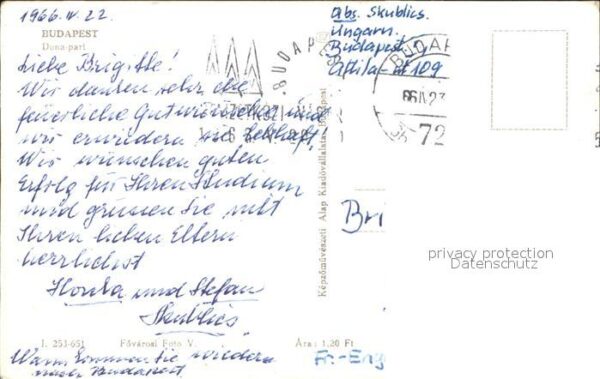 1966. IV. 22.
BUDAPEST
Duna-part
Liebe Brigitte!
Wir danken sehr die
feierliche Gutwünsche und
wir erwidern sie lebhaft!
Wir wünschen guten
Erfolg für Ihren Studium
und grüssen Sie mit
Ihren lieben Eltern
herzlichst
und Stefan
Skublics
I. 251-651 Fővárosi Foto V. Ára: 1,20 Ft
Wann kommen Sie wieder
nach Budapest
Képzőművészeti Alap Kiadóvállalata, Budapest
Abs. Skublics.
Ungarn.
Budapest
Attila-út 109
BUDAPEST
BUDAPEST
66 IV 23
72
Bri
privacy protection
Datenschutz
Fr.-Eng